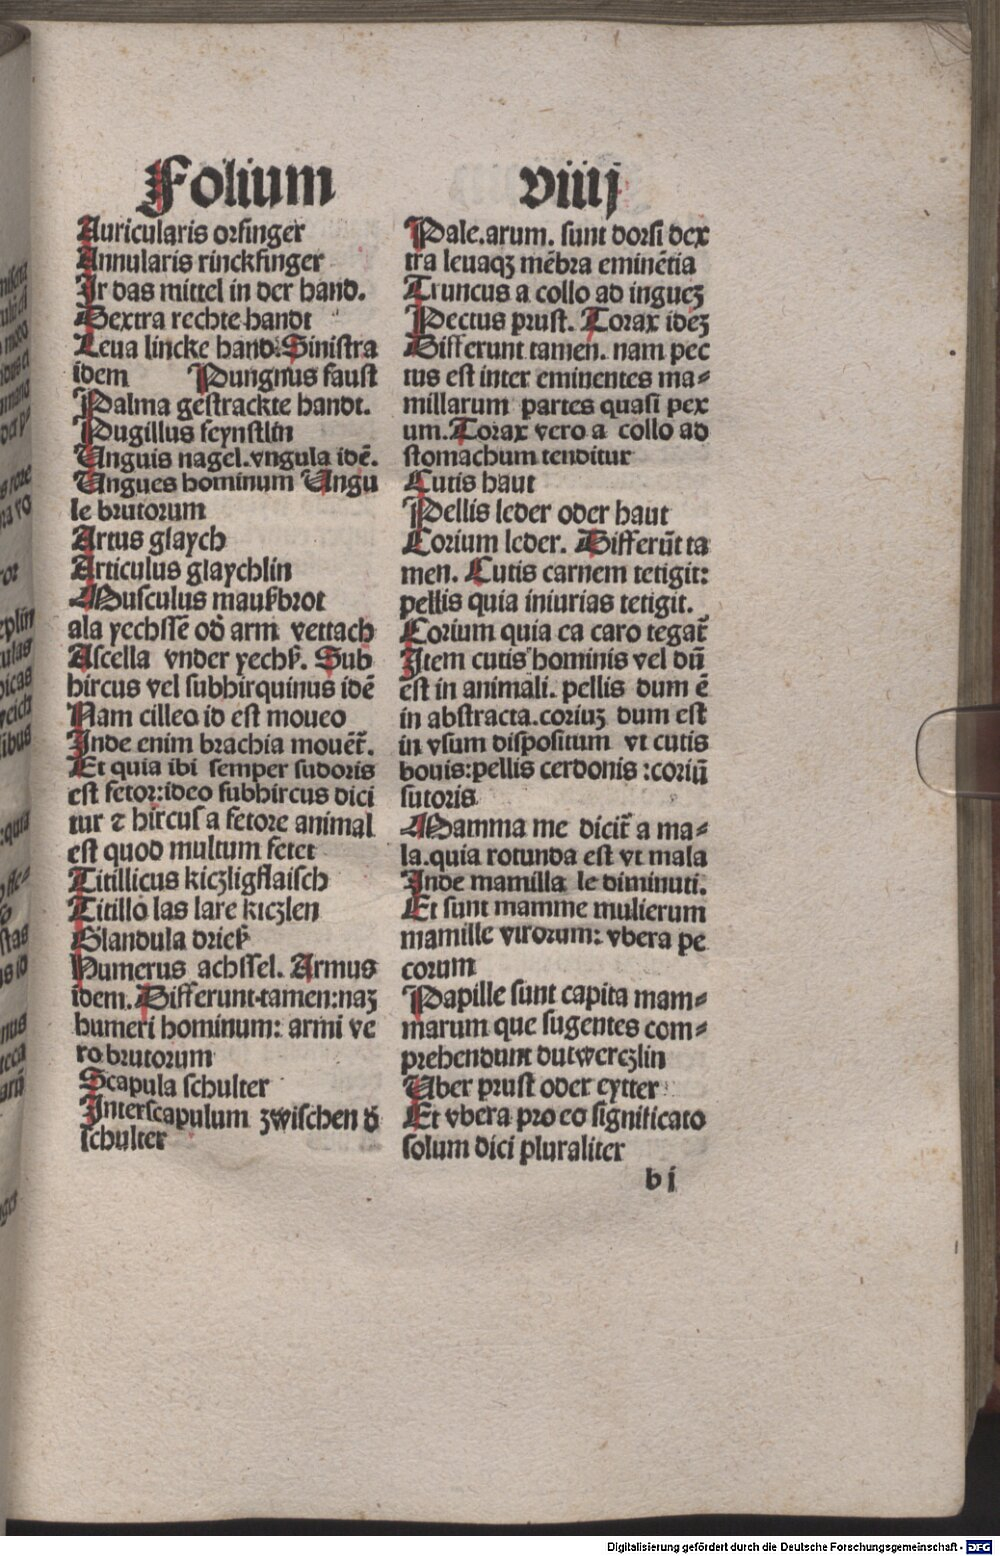 Folium viiij
Auricularis orfinger
Annularis rinckfinger
Jr das mittel in der hand.
Dextra rechte handt
Leua lincke hand. Sinistra
idem Pungnus faust
Palma gestrackte handt.
Pugillus feynstlin
Unguis nagel. vngula idē.
Ungues hominum Ungu
le brutorum
Artus glaych
Articulus glaychlin
Musculus maußbrot
ala yechsse od̄ arm vettach
Ascella vnder yechß. Sub
hircus vel subhirquinus idē
Nam cilleo id est moueo
Inde enim brachia mouēt̄.
Et quia ibi semper sudoris
est fetor: ideo subhircus dici
tur ⁊ hircus a fetore animal
est quod multum fetet
Titillicus kiczligflaisch
Titillo las lare kiczlen
Glandula drieß
Humerus achssel. Armus
idem. Differunt tamen: naꝫ
humeri hominum: armi ve
ro brutorum
Scapula schulter
Interscapulum zwischen d̄
schulter
Pale. arum. sunt dorsi dex
tra leuaqꝫ mēbra eminētia
Truncus a collo ad ingueꝫ
Pectus prust. Torax ideꝫ
Differunt tamen. nam pec
tus est inter eminentes ma⸗
millarum partes quasi pex
um. Torax vero a collo ad
stomachum tenditur
Cutis haut
Pellis leder oder haut
Corium leder. Differūt ta
men. Cutis carnem tetigit:
pellis quia iniurias tetigit.
Corium quia ea caro tegat̄
Item cutis hominis vel dū
est in animali. pellis dum ē
in abstracta. coriuꝫ dum est
in vsum dispositum vt cutis
bouis: pellis cerdonis: coriū
sutoris
Mamma me dicit̄ a ma⸗
la. quia rotunda est vt mala
Inde mamilla le diminuti.
Et sunt mamme mulierum
mamille virorum: vbera pe
corum
Papille sunt capita mam⸗
marum que sugentes com⸗
prehendunt dutwerczlin
Uber prust oder eytter
Et vbera pro eo significato
solum dici pluraliter
b j
Digitalisierung gefördert durch die Deutsche Forschungsgemeinschaft - DFG